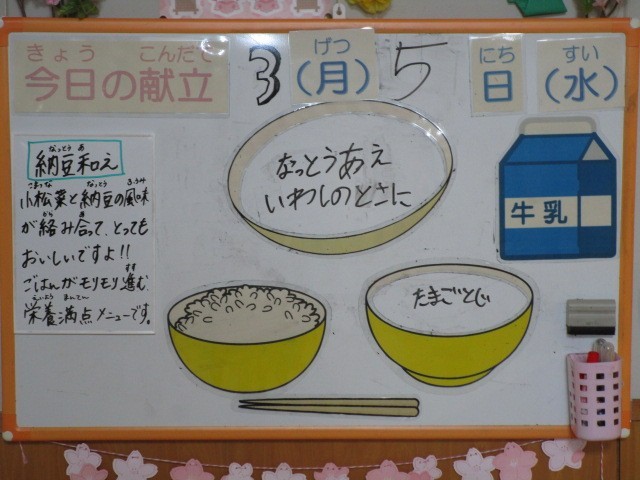 きょう こんだて
今日の献立
3
げつ
（月）
5
にち
日
すい
（水）
なっとう あ
納豆和え
こまつな なっとう ふうみ
小松菜と納豆の風味
から あ
が絡み合って、とっても
おいしいですよ!!
すす
ごはんがモリモリ進む
えいよう まんてん
栄養満点メニューです。
なっとうあえ
いわしのとさに
牛乳
たまごとじ